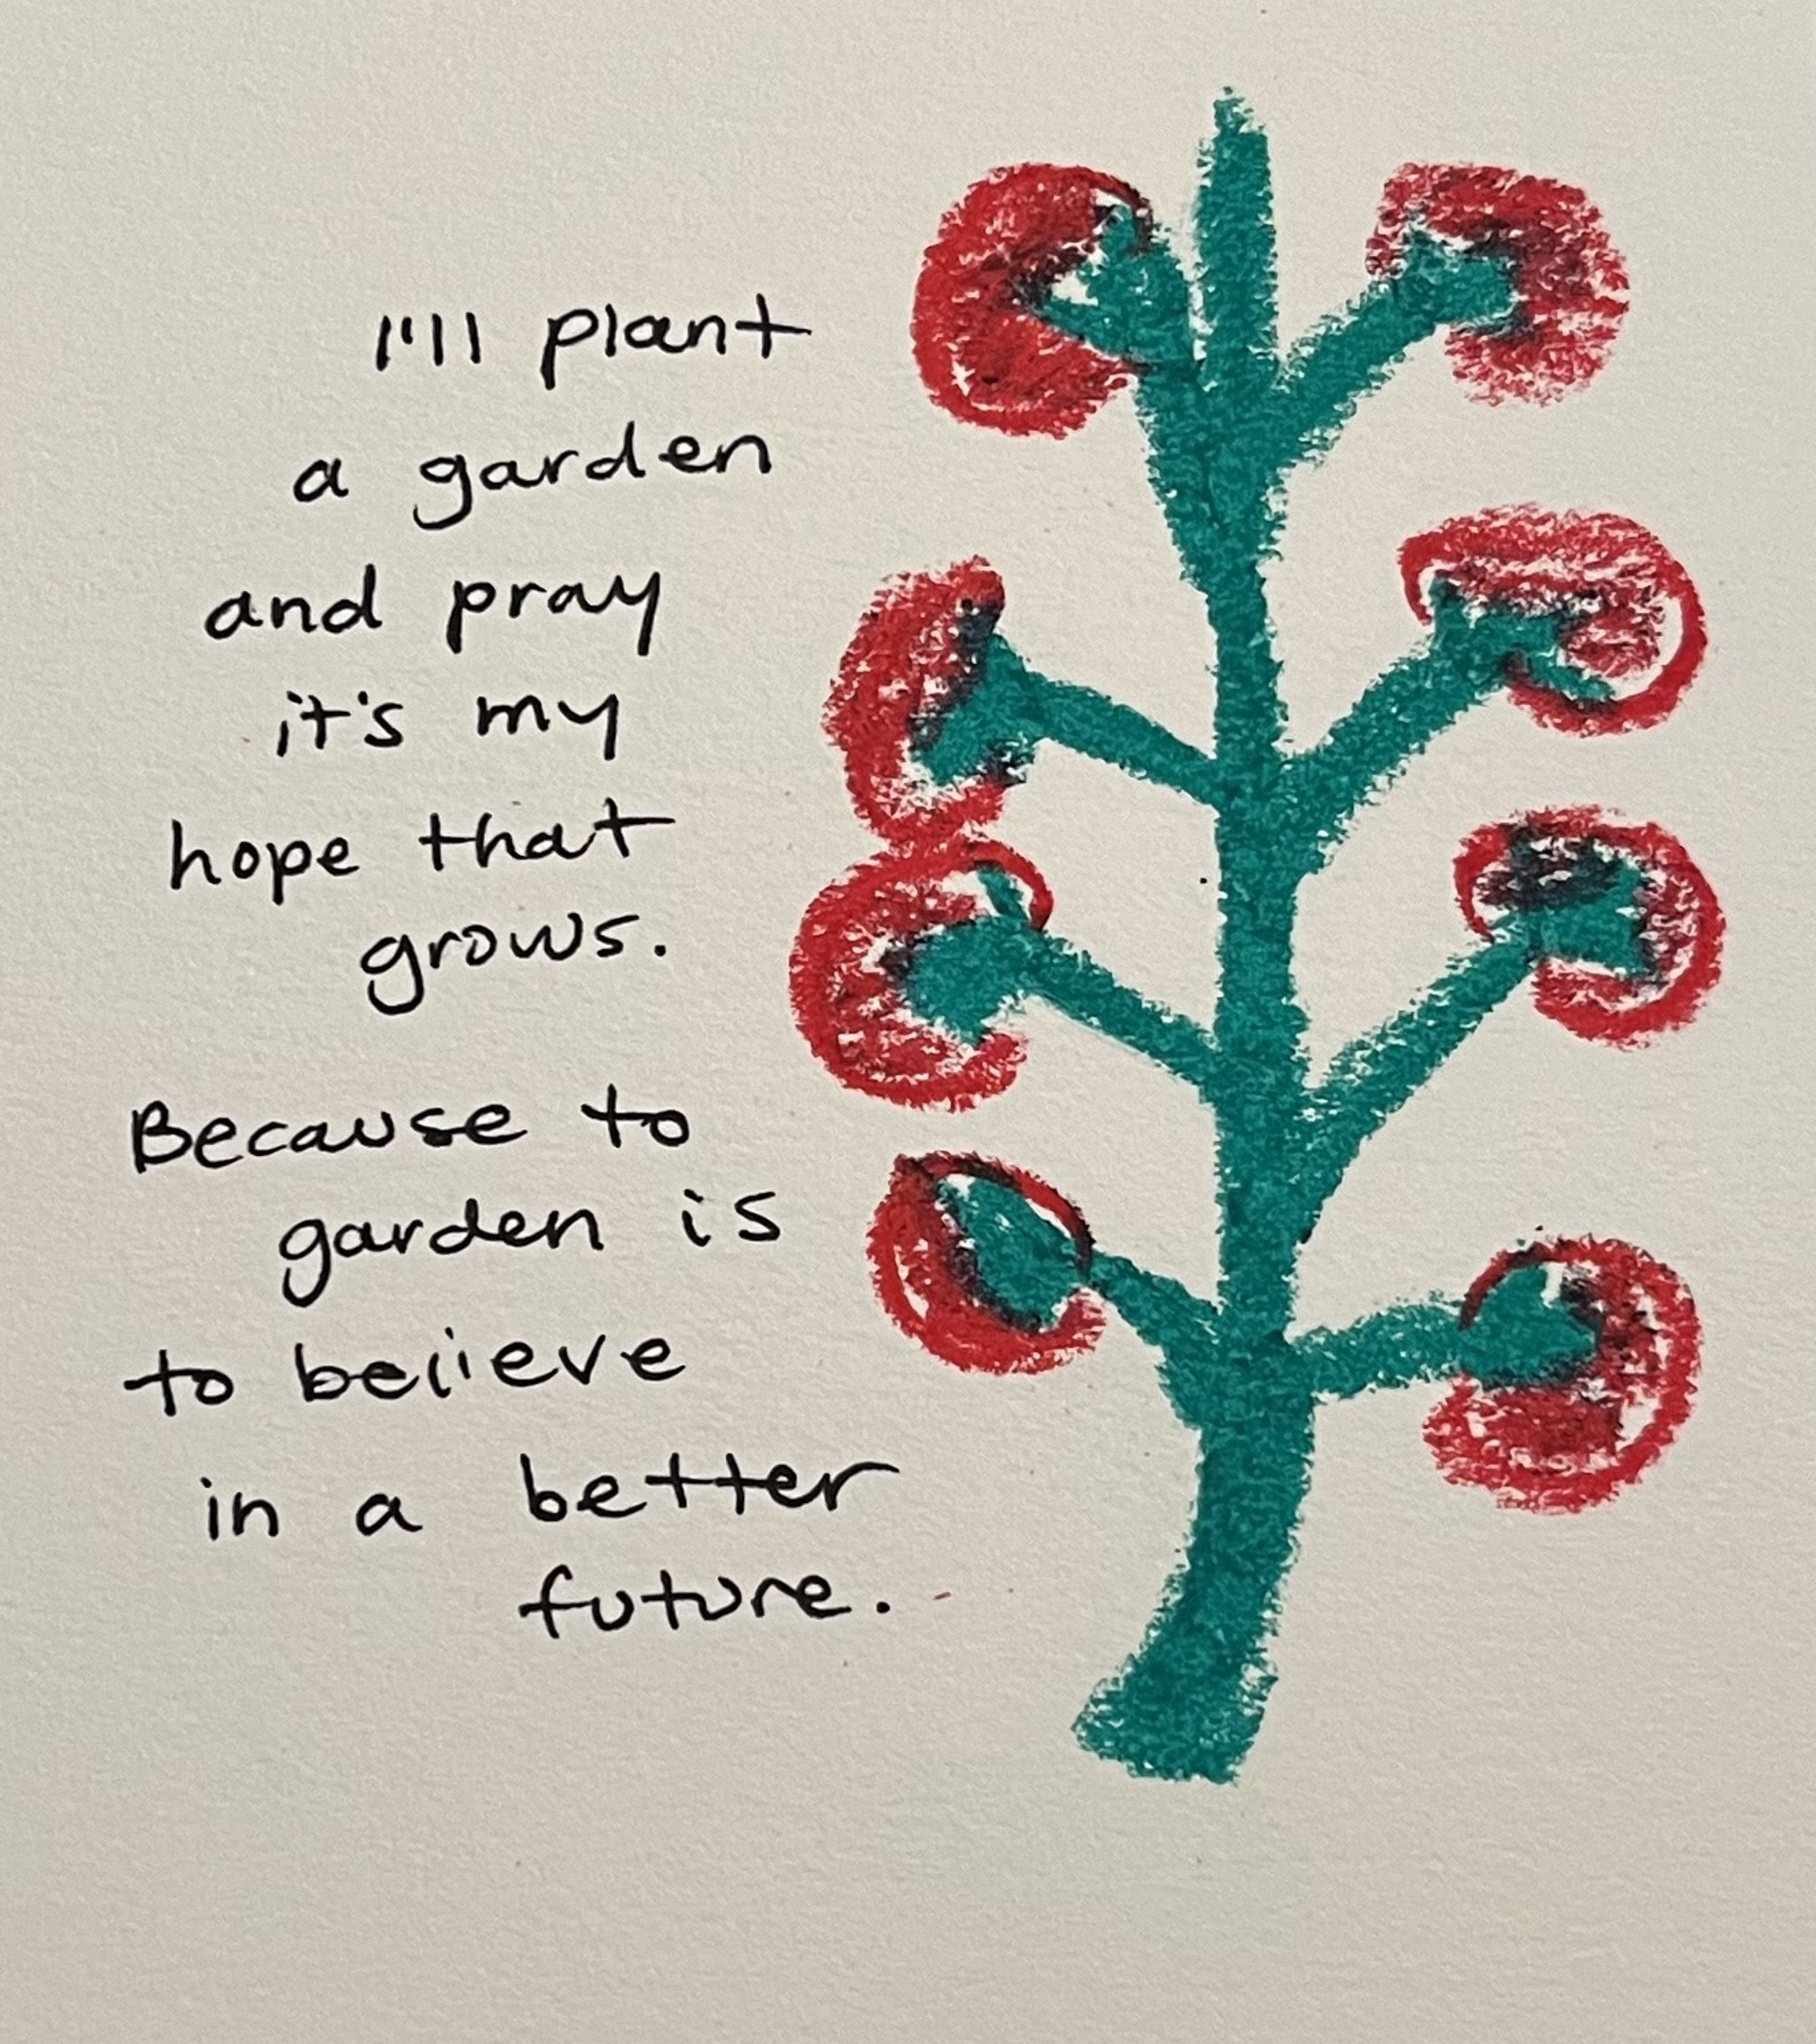 I'll plant
a garden
and pray
it's my
hope that
grows.
Because to
garden is
to believe
in a better
future.